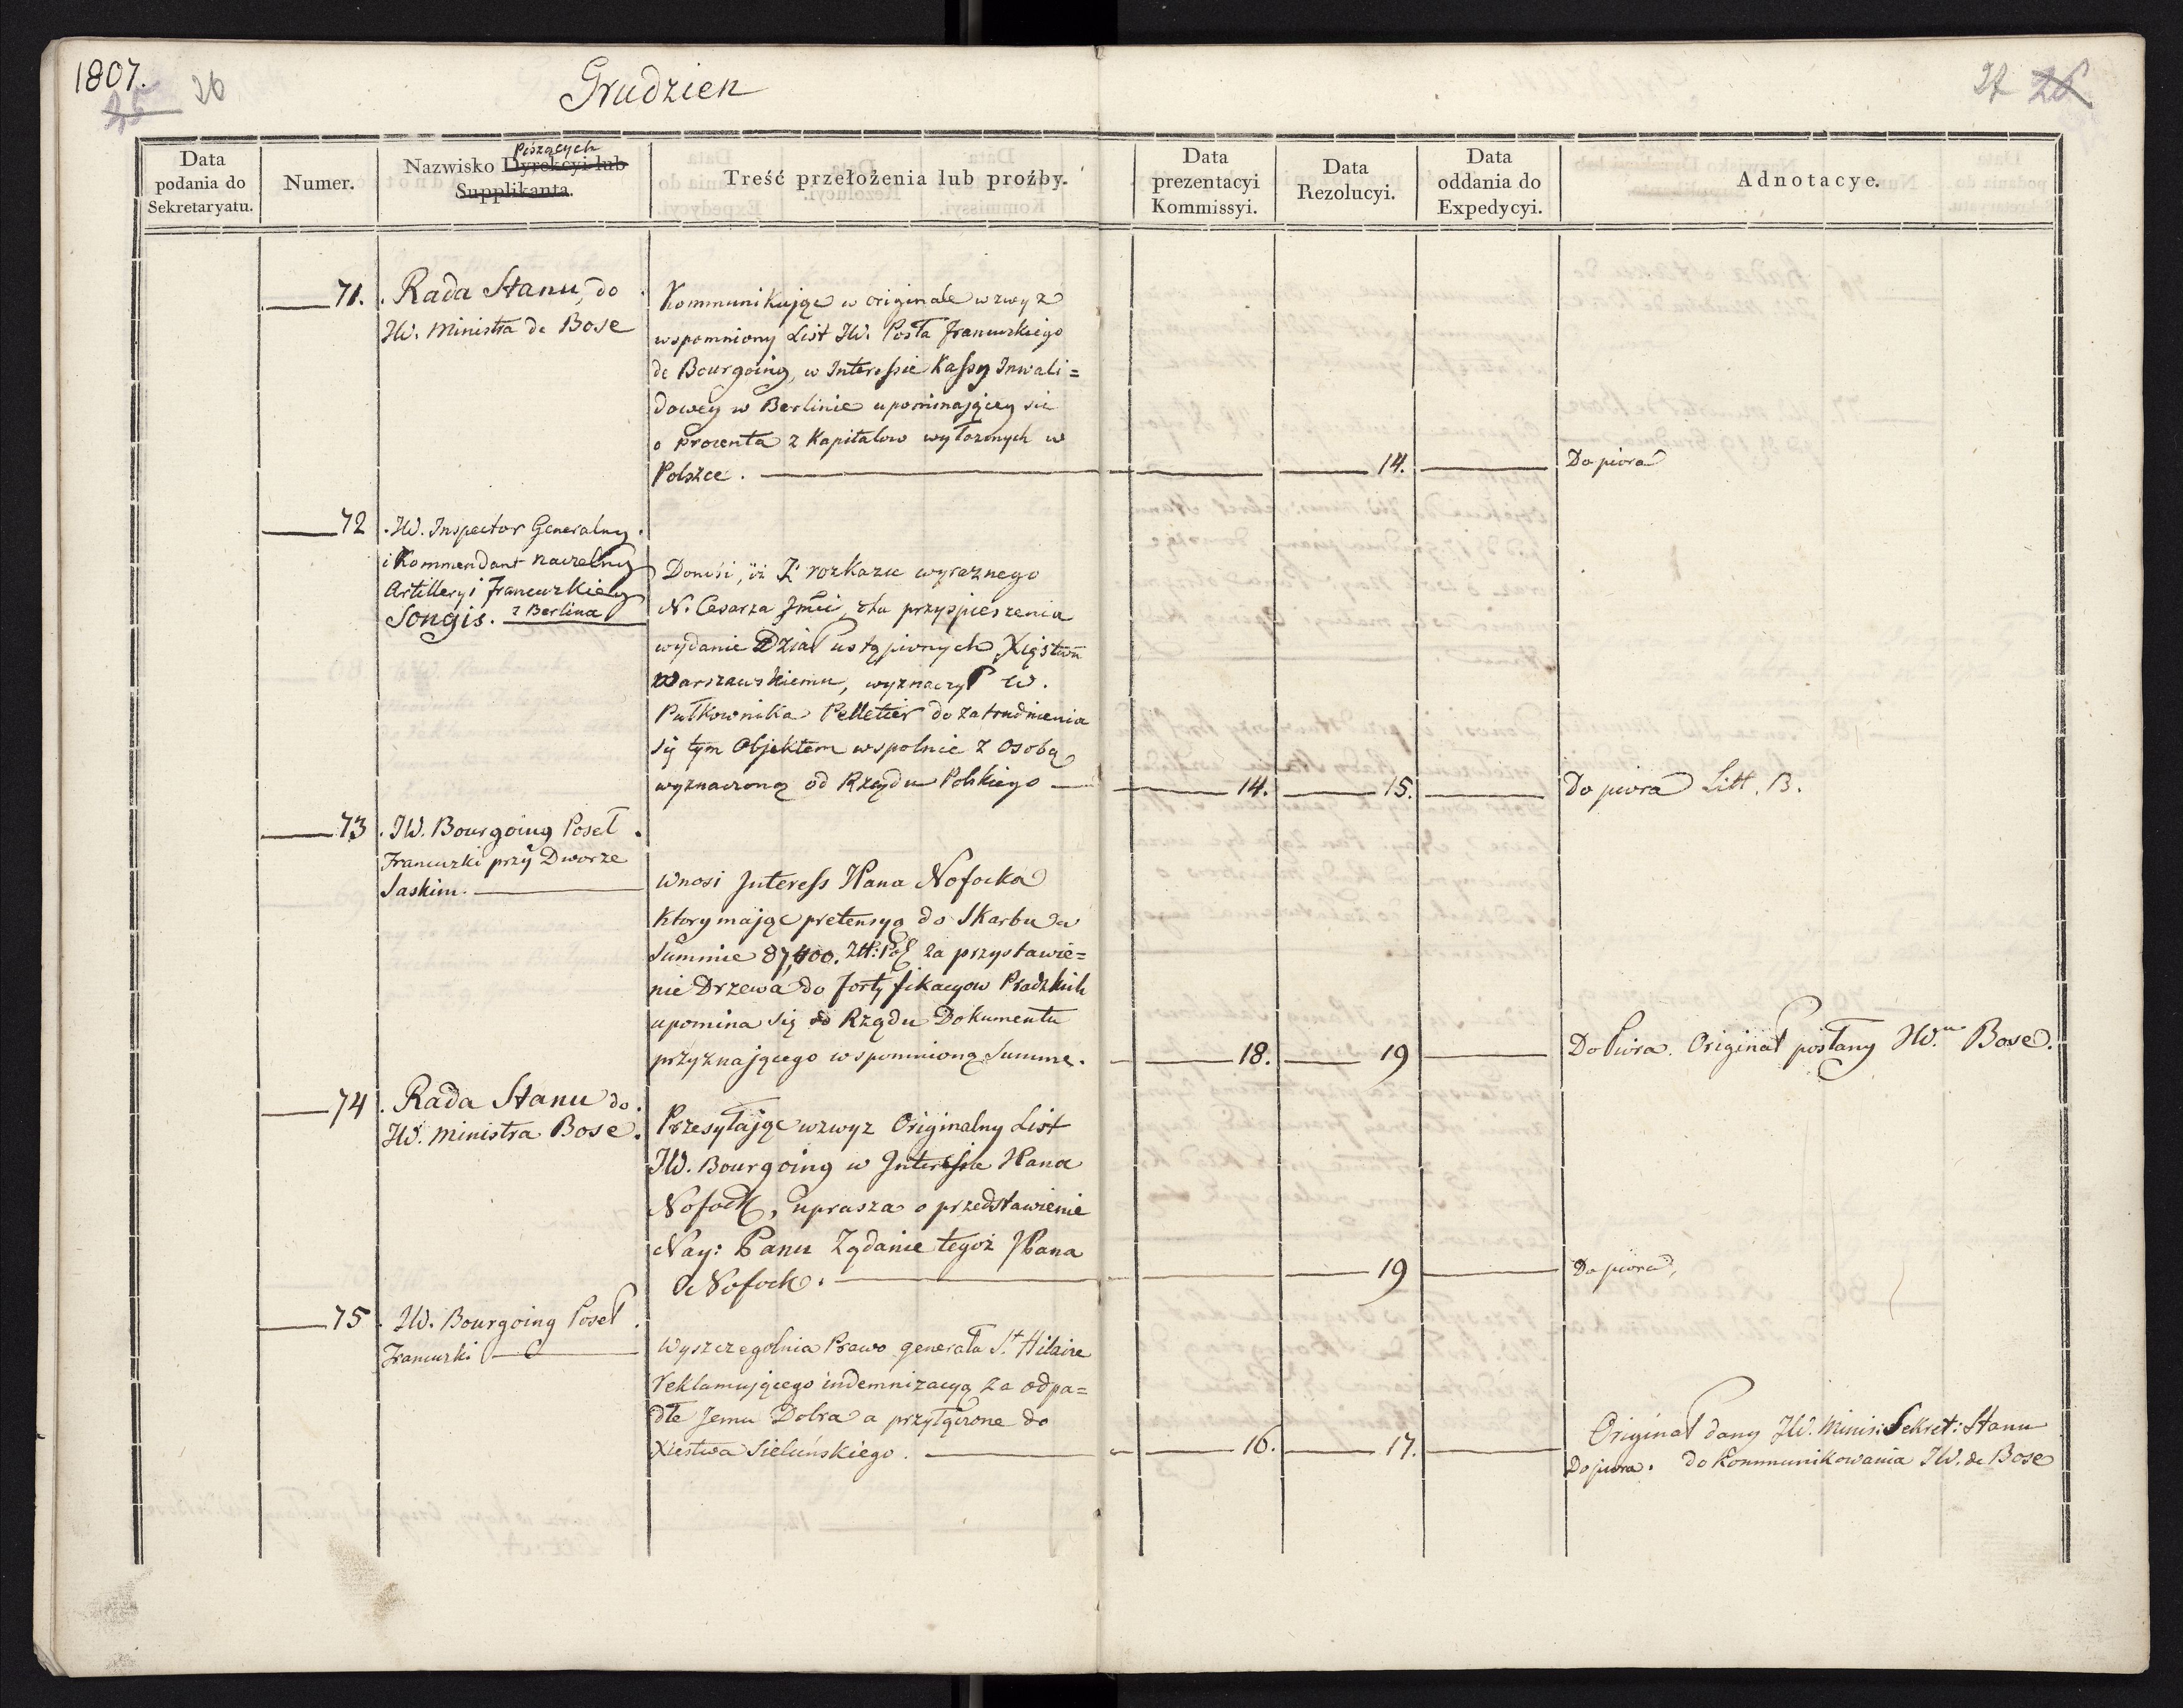 1807.
25 26
Grudzien
27 26
Data podania do Sekretaryatu.
Numer.
Piszących
Nazwisko Dyrekcyi lub Supplikanta.
Treść przełożenia lub proźby.
Data prezentacyi Kommissyi.
Data Rezolucyi.
Data oddania do Expedycyi.
Adnotacye.
71. Rada Stanu, do
JW. Ministra de Bose
Kommunikując w originale wzwyz
wspomniony List JW. Posła Francuzkiego
de Bourgoing, w Interessie Kassy Inwali=
dowey w Berlinie upominającey sie
o procenta z Kapitalow wyłozonych w
Polszce.
14.
Do piora
72 JW. Inspector Generalny
i Kommendant naczelny
Artilleryi Francuzkiey
Songis. z Berlina
Donosi, iż Z rozkazu wyraznego
N. Cesarza Jmći, dla przyspieszenia
wydanie Dział ustąpionych Xięstwu
Warszawskiemu, wyznaczył W.
Pułkownika Pelletier do zatrudnienia
się tym Objektem wspolnie z Osobą
wyznaczoną od Rządu Polskiego
14.
15.
Do piora Litt. B.
73 JW. Bourgoing Poseł
Francuzki przy Dworze
Saskim.
Wnosi Interess Pana Nofocka
ktory mając pretensyą do Skarbu w
Summie 87,400. Złł: Pol za przystawie=
nie Drzewa do fortyfikacyow Pradzkich
upomina się od Rządu Dokumentu
przyznającego wspomnioną Summe.
18.
19
Do Piora. Originał posłany JW.u Bose.
74 Rada Stanu do
JW. Ministra Bose.
Przesyłając wzwyz Originalny List
JW. Bourgoing w Interessie Pana
Nofock, uprasza o przedstawienie
Nay: Panu Ządanie tegoż Pana
Nofock.
19
Do piora,
75 JW. Bourgoing Poseł
Francuzki
Wyszczegolnia Prawo generała St Hilaire
reklamującego indemnizacyą za odpa=
dłe Jemu Dobra a przyłączone do
Xiestwa Sieluńskiego.
16.
17.
Originał dany JW. Minis: Sekret: Stanu
Do piora. do kommunikowania JW. de Bose